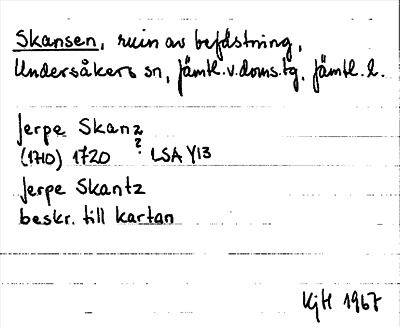 Skansen, ruin av befästning,
Undersåkers sn, Jämtl. v. doms. tg, Jämtl. l.
Jerpe Skanz
?
(1710) 1720 LSA Y13
Jerpe Skantz
beskr. till kartan
KjH 1967